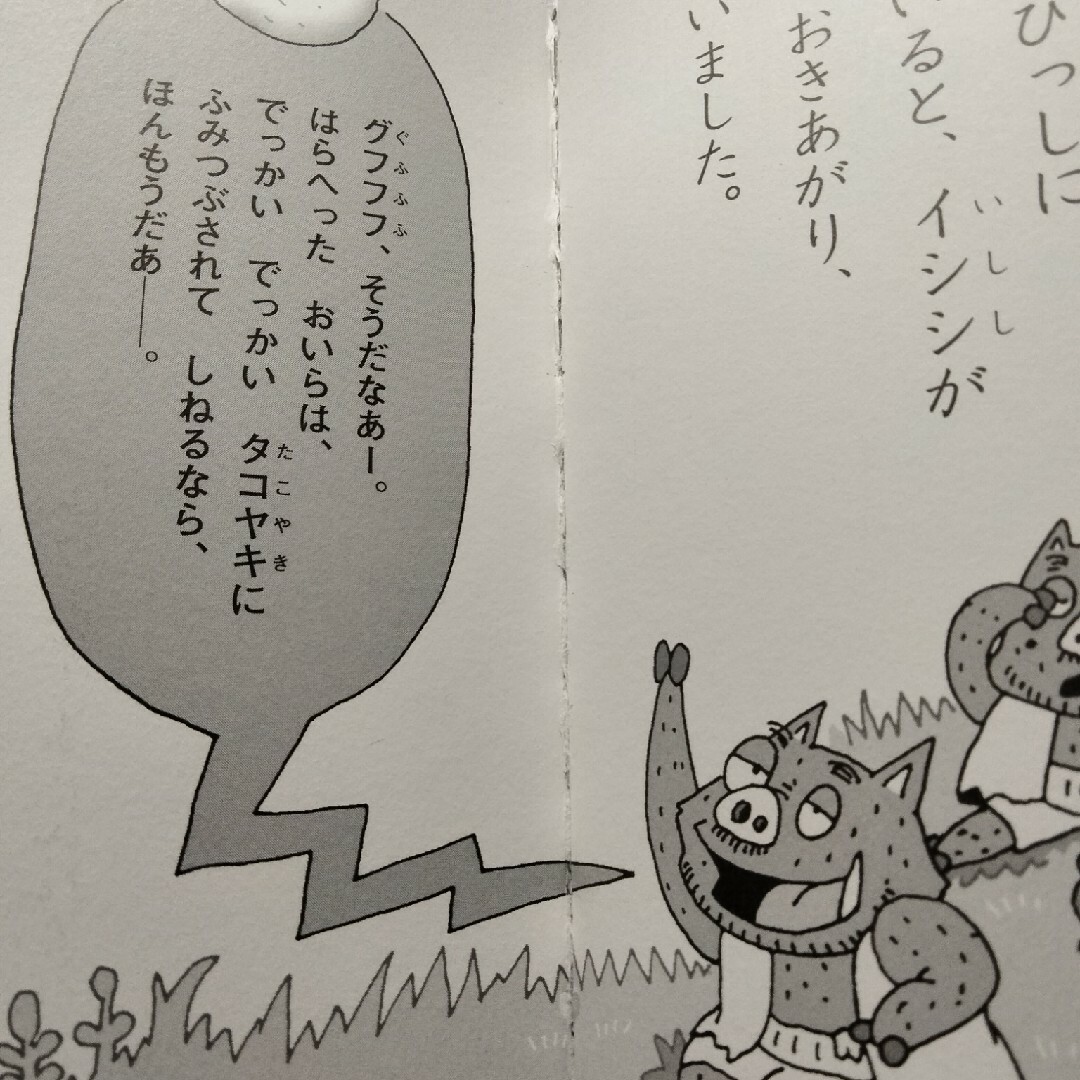 ひっしに
ると、イシシが
いしし
おきあがり、
いました。
グフフフ、そうだなあー。
ぐふふふ
はらへった　おいらは、
でっかい　でっかい　タコヤキに
たこやき
ふみつぶされて　しねるなら、
ほんもうだあ――。